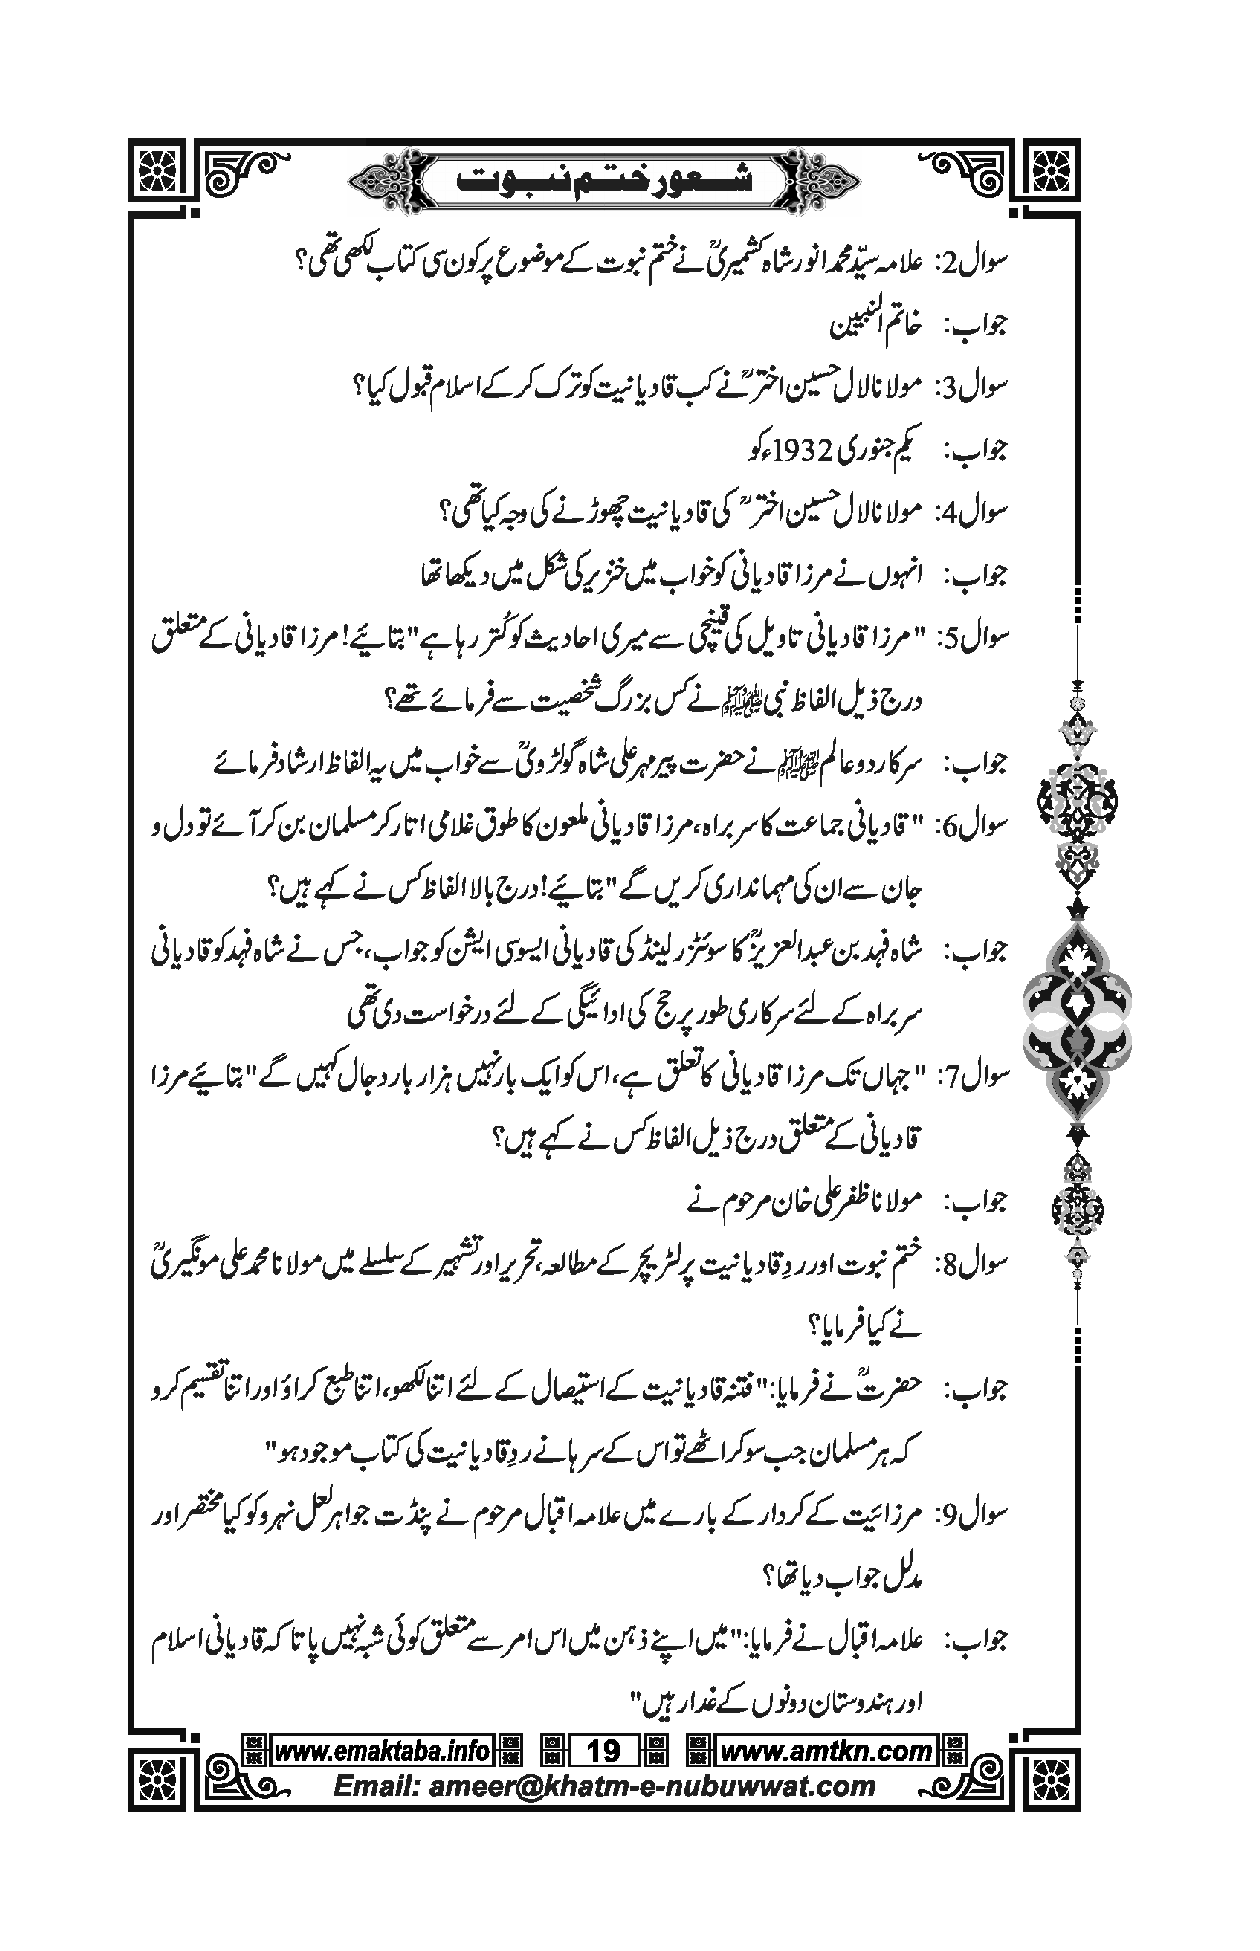 شعور ختم نبوت
سوال2: علامہ سیّد محمد انور شاہ کشمیریؒ نے ختم نبوت کے موضوع پر کون سی کتاب لکھی تھی؟
جواب: خاتم النبیین
سوال3: مولانا لال حسین اخترؒ نے کب قادیانیت کو ترک کر کے اسلام قبول کیا؟
جواب: یکم جنوری 1932ء کو
سوال4: مولانا لال حسین اخترؒ کی قادیانیت چھوڑنے کی وجہ کیا تھی؟
جواب: انہوں نے مرزا قادیانی کو خواب میں خنزیر کی شکل میں دیکھا تھا
سوال5: "مرزا قادیانی تاویل کی قینچی سے میری احادیث کو کُتر رہا ہے" بتائیے! مرزا قادیانی کے متعلق
درج ذیل الفاظ نبی ﷺ نے کس بزرگ شخصیت سے فرمائے تھے؟
جواب: سرکار دو عالم ﷺ نے حضرت پیر مہر علی شاہ گولڑویؒ سے خواب میں یہ الفاظ ارشاد فرمائے
سوال6: "قادیانی جماعت کا سربراہ، مرزا قادیانی ملعون کا طوق غلامی اتار کر مسلمان بن کر آئے تو دل و
جان سے ان کی مہمانداری کریں گے" بتائیے! درج بالا الفاظ کس نے کہے ہیں؟
جواب: شاہ فہد بن عبدالعزیزؒ کا سوئٹزر لینڈ کی قادیانی ایسوسی ایشن کو جواب، جس نے شاہ فہد کو قادیانی
سربراہ کے لئے سرکاری طور پر حج کی ادائیگی کے لئے درخواست دی تھی
سوال7: "جہاں تک مرزا قادیانی کا تعلق ہے، اس کو ایک بار نہیں ہزار بار دجال کہیں گے" بتائیے مرزا
قادیانی کے متعلق درج ذیل الفاظ کس نے کہے ہیں؟
جواب: مولانا ظفر علی خان مرحوم نے
سوال8: ختم نبوت اور ردِ قادیانیت پر لٹریچر کے مطالعہ، تحریر اور تشہیر کے سلسلے میں مولانا محمد علی مونگیریؒ
نے کیا فرمایا؟
جواب: حضرتؒ نے فرمایا: "فتنہ قادیانیت کے استیصال کے لئے اتنا لکھو، اتنا طبع کراؤ اور اتنا تقسیم کرو
کہ ہر مسلمان جب سو کر اٹھے تو اس کے سرہانے ردِ قادیانیت کی کتاب موجود ہو"
سوال9: مرزائیت کے کردار کے بارے میں علامہ اقبال مرحوم نے پنڈت جواہر لعل نہرو کو کیا مختصر اور
مدلل جواب دیا تھا؟
جواب: علامہ اقبال نے فرمایا: "میں اپنے ذہن میں اس امر سے متعلق کوئی شبہ نہیں پاتا کہ قادیانی اسلام
اور ہندوستان دونوں کے غدار ہیں"
www.emaktaba.info 19 www.amtkn.com
Email: ameer@khatm-e-nubuwwat.com